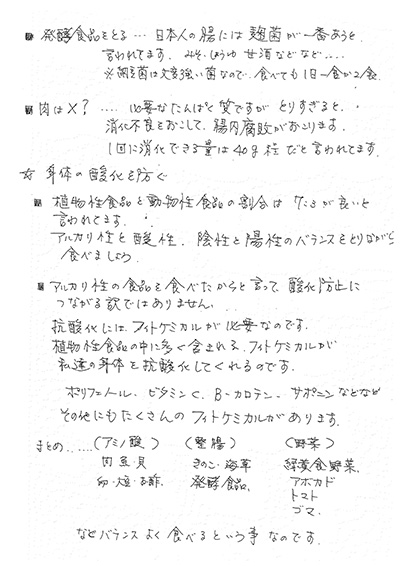 ■ 発酵食品をとる… 日本人の腸には麹菌が一番あうと
言われてます. みそ.しょうゆ 甘酒などなど....
※納豆菌は大変強い菌なので.食べても1日一食か2食.
■ 肉は×? .... 必要なたんぱく質ですが とりすぎると.
消化不良をおこして.腸内腐敗がおこります.
1回に消化できる量は40g程だと言われてます.
☆ 身体の酸化を防ぐ
■ 植物性食品と動物性食品の割合は 7:3が良いと
言われてます.
アルカリ性と酸性. 陰性と陽性のバランスをとりながら
食べましょう.
■ アルカリ性の食品を食べたからと言って 酸化防止に
つながる訳ではありません.
抗酸化にはフィトケミカルが必要なのです.
植物性食品の中に多く含まれる.フィトケミカルが
私達の身体を抗酸化してくれるのです.
ポリフェノール. ビタミンC. B-カロテン. サポニンなどなど
その他にもたくさんのフィトケミカルがあります.
まとめ...... (アミノ酸) (整腸) (野菜)
肉 魚・貝 きのこ・海草 緑黄色野菜.
卵・大豆・お酢. 発酵食品. アボカド
トマト
ゴマ.
などバランスよく食べるという事なのです.